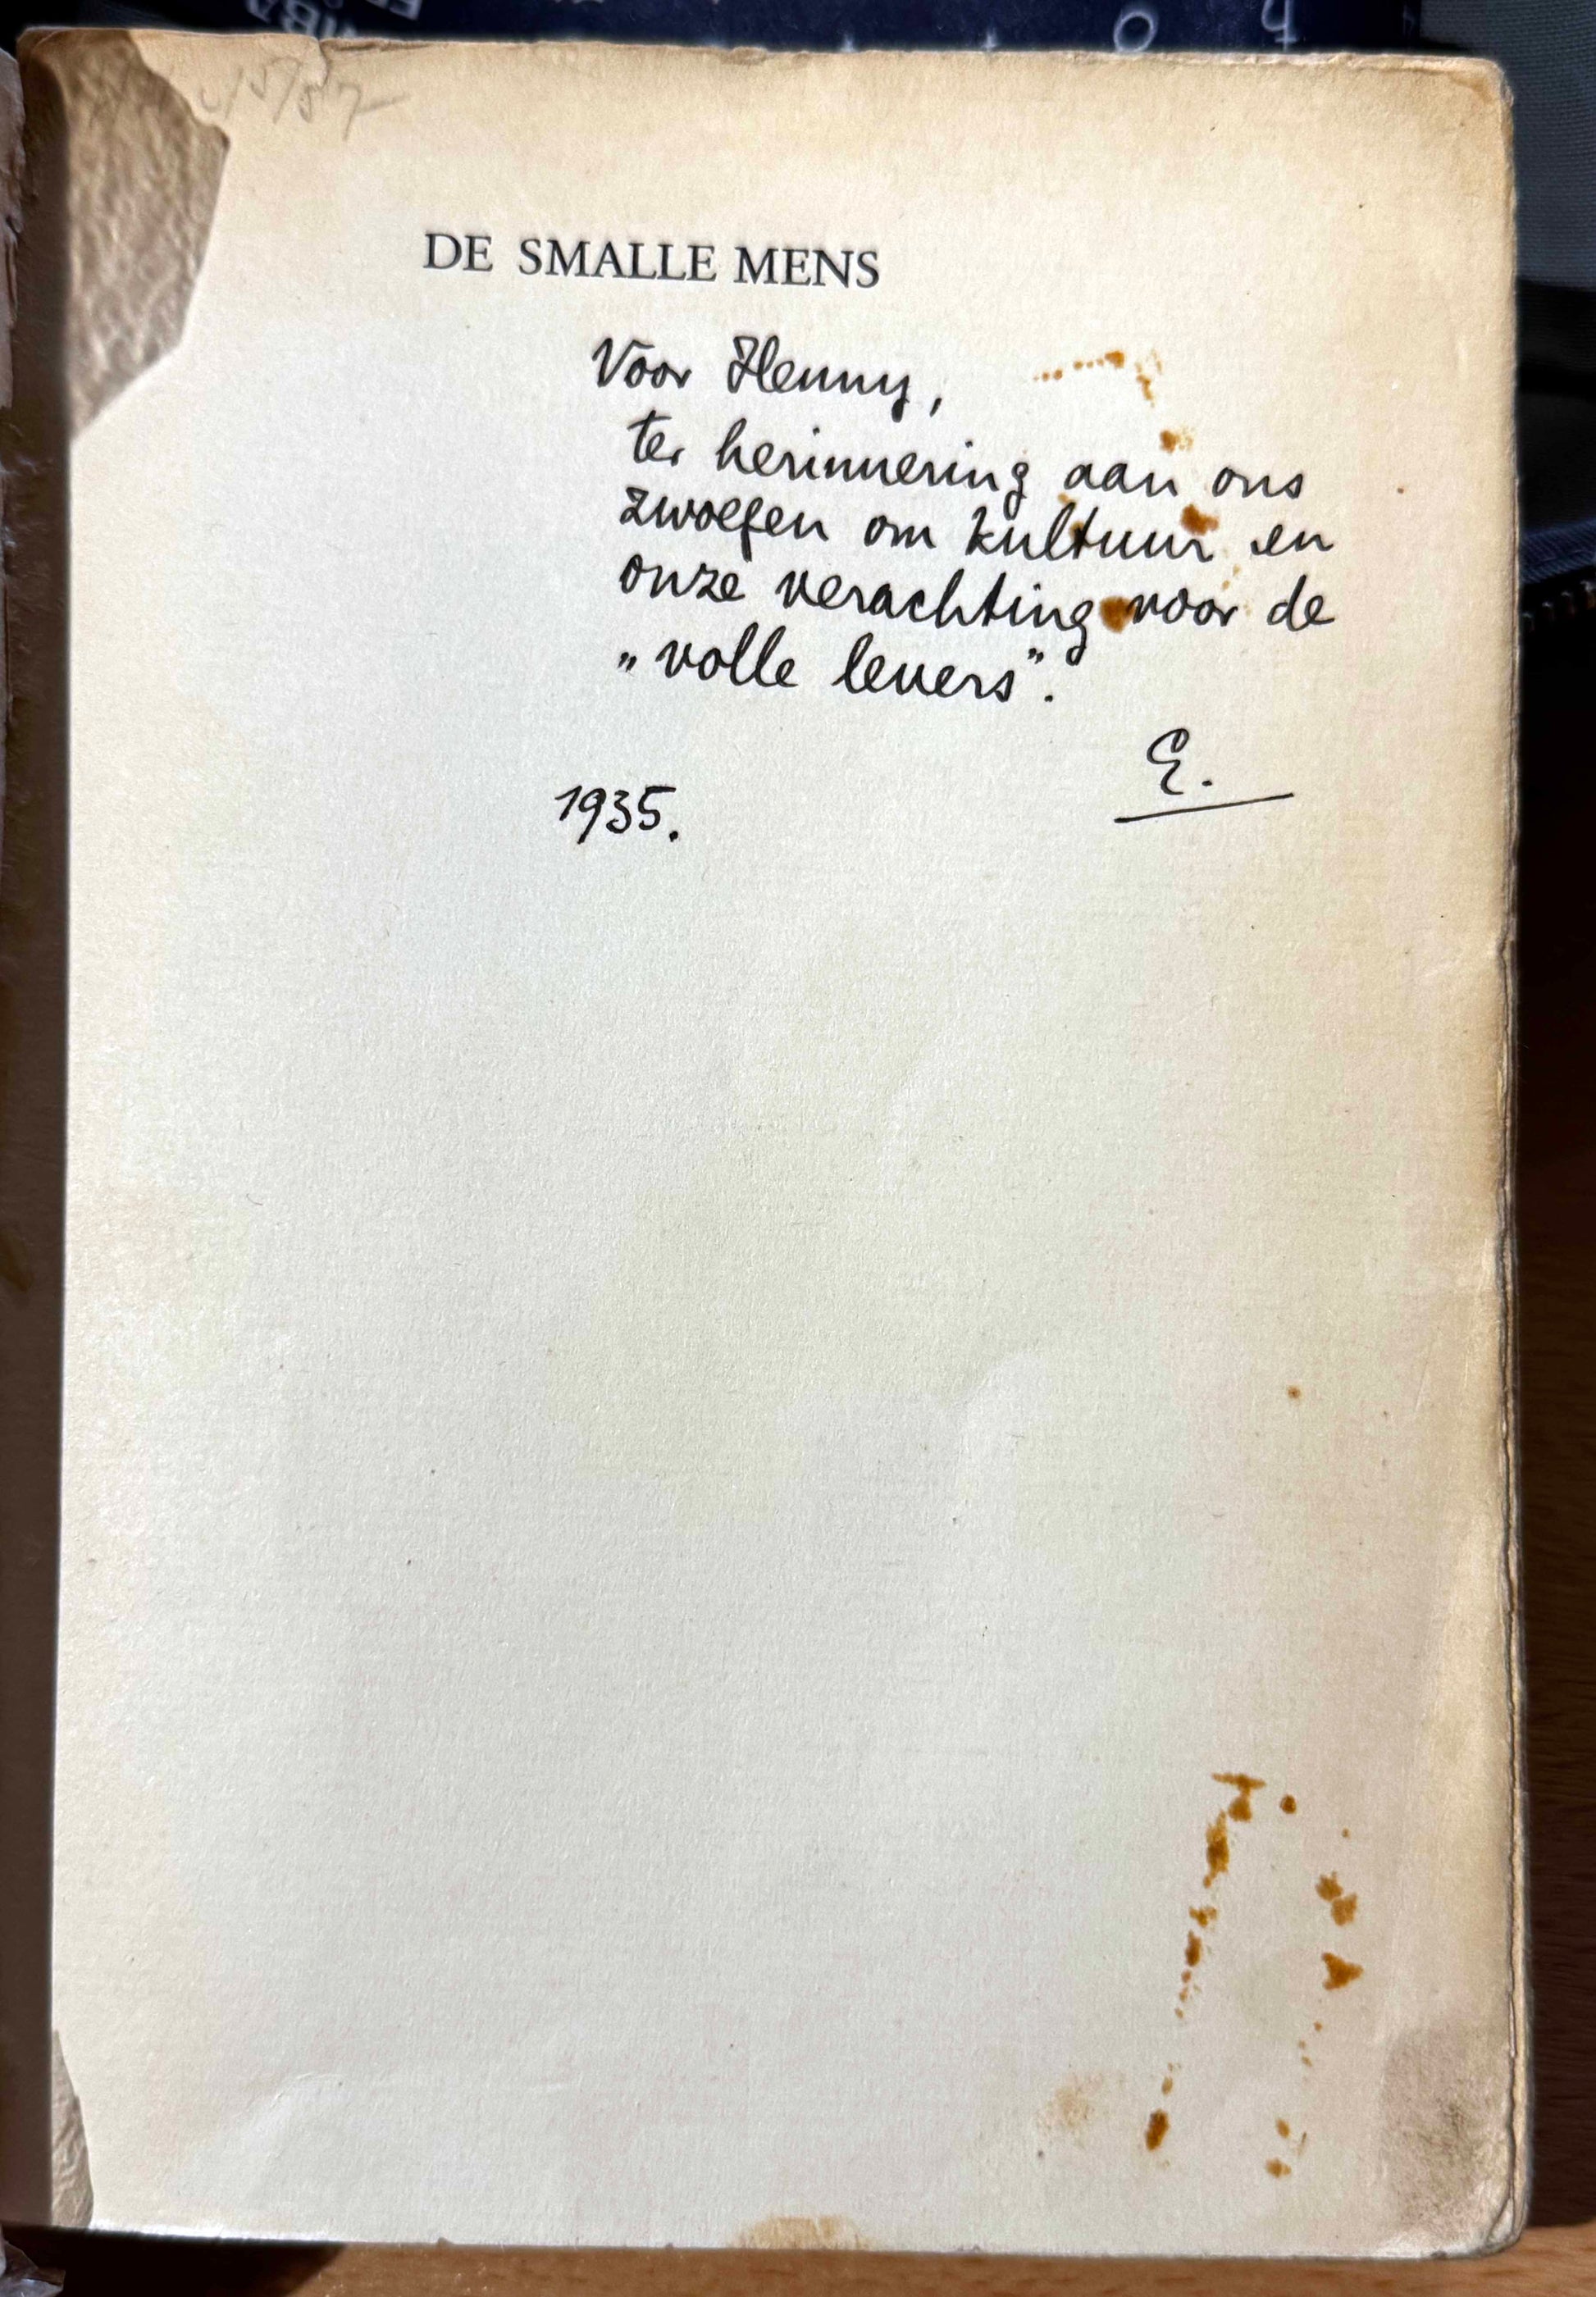 DE SMALLE MENS
Voor Henny,
ter herinnering aan ons
zwoegen om kultuur en
onze verachting voor de
„volle levers”.
E.
1935.